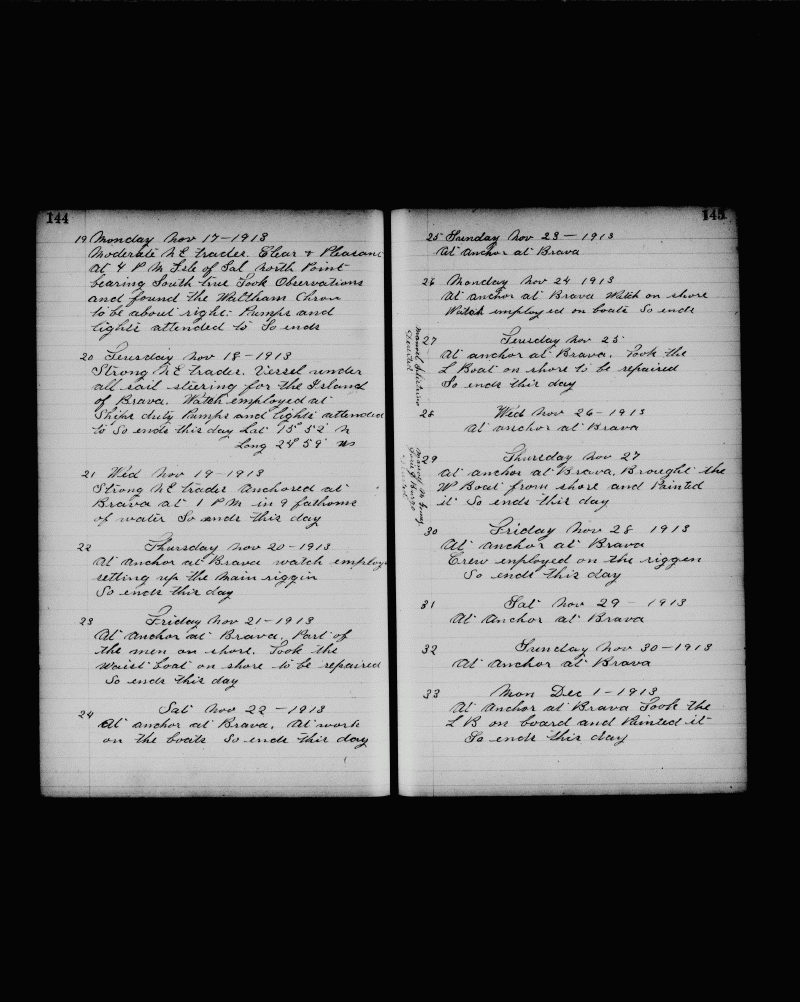 144
19 Monday Nov 17-1913
Moderate N E Trades. Clear & Pleasant
At 4 P M Isle of Sal north Point
bearing South true Took Observations
and found the Waltham Chron
to be about right: Pumps and
lights attended to So ends
20 Teusday Nov 18-1913
Strong N E trades. Vessel under
all sail steering for the Island
of Brava. Watch employed at
Ships duty Pumps and lights attended
to So ends this day Lat 15° 52' N
Long 24° 59' Ws
21 Wed Nov 19-1913
Strong N E trades Anchored at
Brava at 1 P M in 9 fathoms
of water So ends this day
22 Thursday Nov 20-1913
At Anchor at Brava watch employ
setting up the main riggin
So ends this day
23 Friday Nov 21-1913
At Anchor at Brava. Part of
the men on shore. Took the
waist boat on shore to be repaired
So ends this day
24 Sat Nov 22-1913
At anchor at Brava. At work
on the boats So ends this day
145
25 Sunday Nov 23-1913
At anchor at Brava
26 Monday Nov 24 1913
At anchor at Brava Watch on shore
Watch employed on boats So ends
27 Teusday Nov 25
At anchor at Brava. Took the
L Boat on shore to be repaired
So ends this day
Manuel
Deserted
28 Wed Nov 26-1913
At anchor at Brava
29 Thursday Nov 27
At anchor at Brava. Brought the
W Boat from shore and Painted
it So ends this day
30 Friday Nov 28 1913
At anchor at Brava
Crew employed on the riggen
So ends this day
31 Sat Nov 29-1913
At Anchor at Brava
32 Sunday Nov 30-1913
At Anchor at Brava
33 Mon Dec 1-1913
At Anchor at Brava Took the
L B on board and Painted it
So ends this day